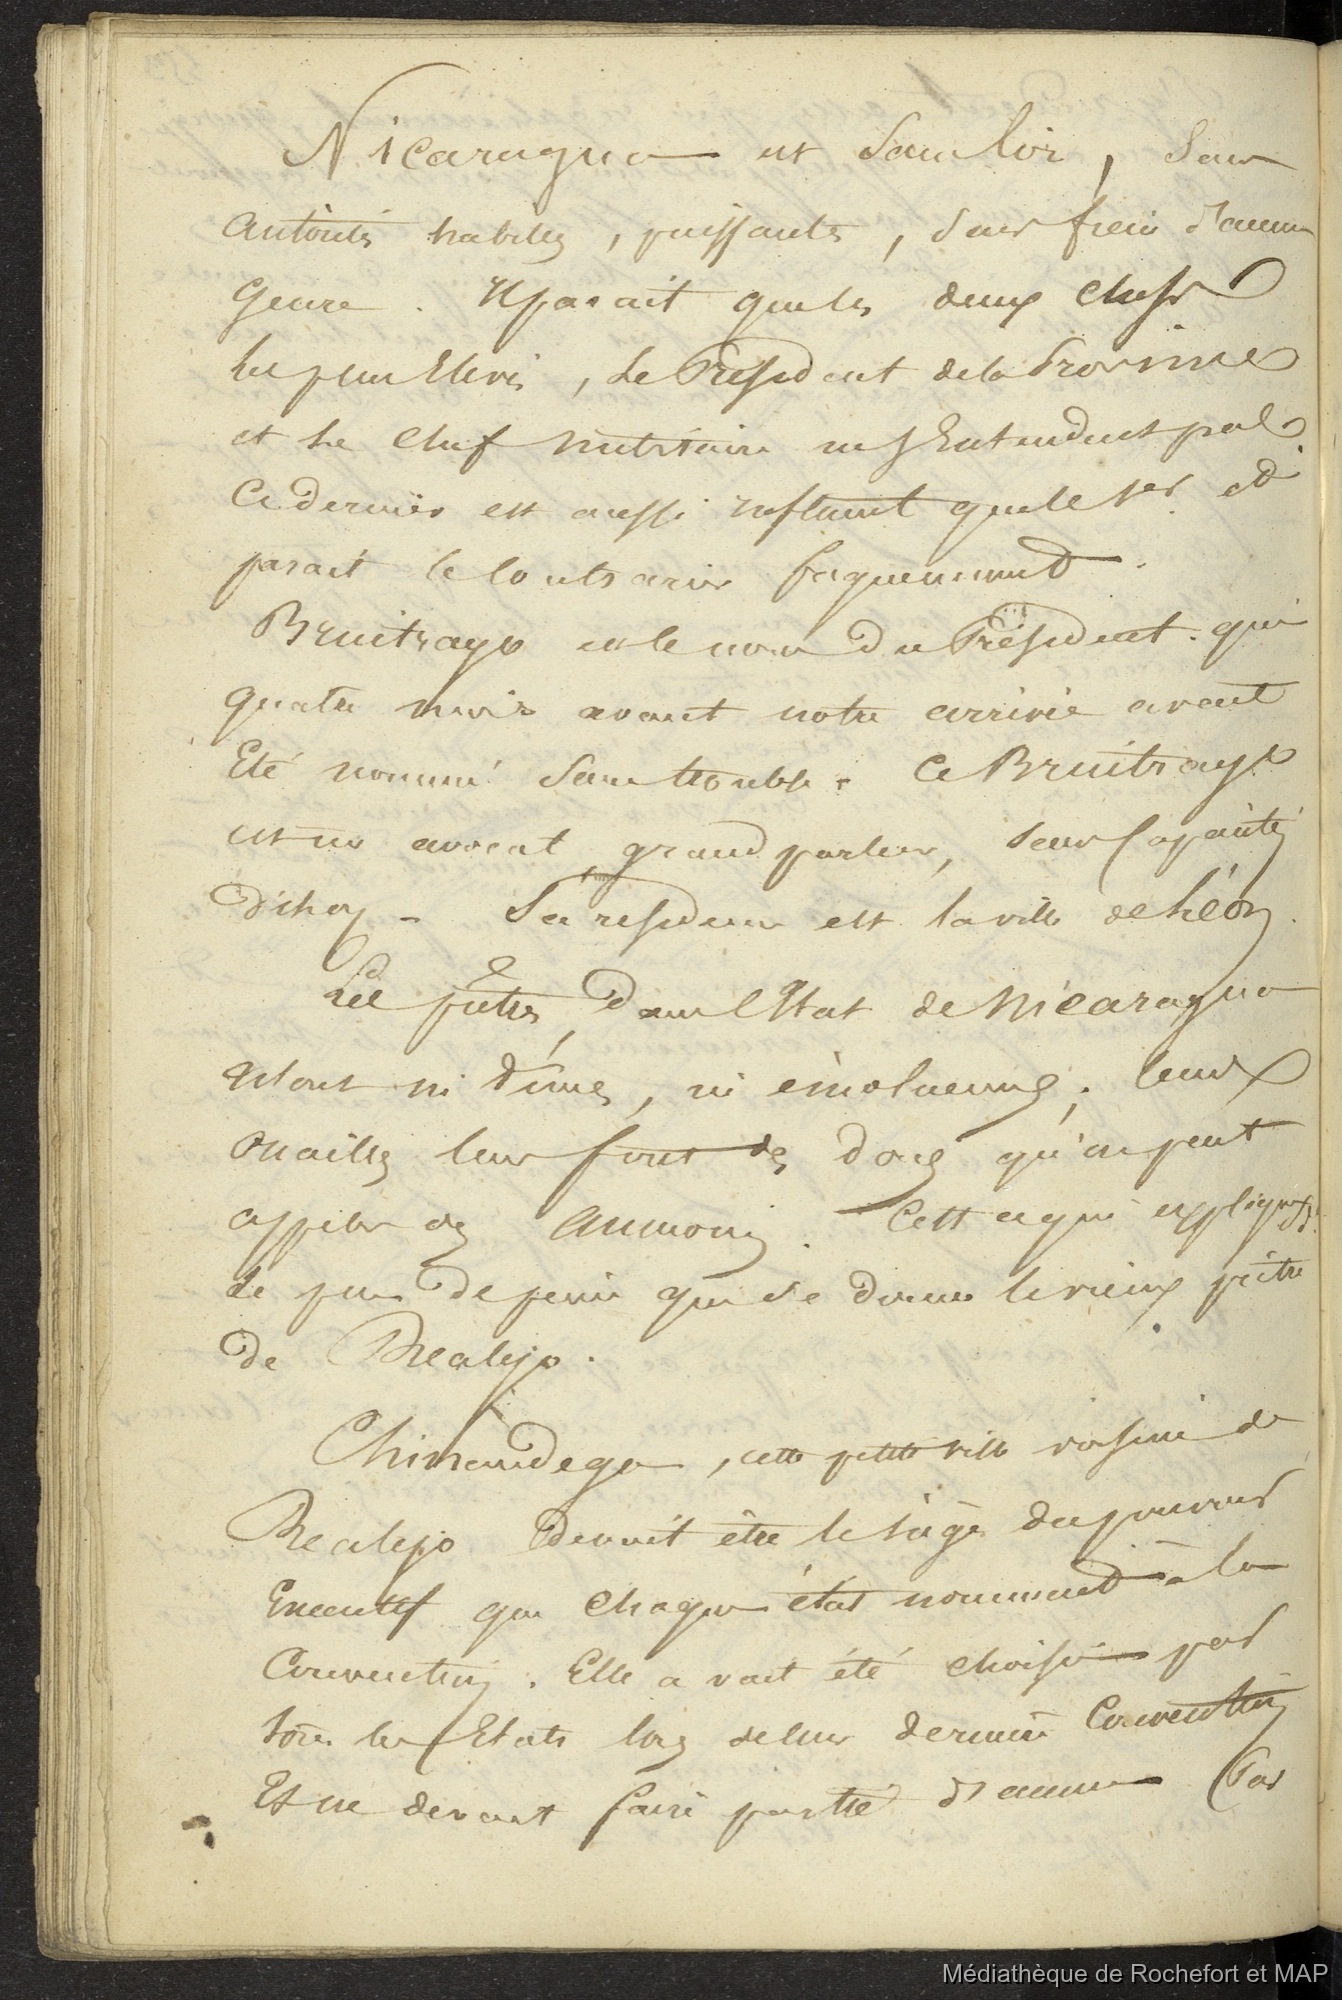 Nicaragua est sans loix, sans
autorités habiles, puissantes, sans frein d'aucun
genre. Il parait que les deux chefs
les plus élevés, le Président de la Province
et le chef militaire ne s'entendent pas.
Ce dernier est aussi influent que le 1er et
parait le contrarier fréquemment.
Bruitrago est le nom du Président. qui
quatre mois avant notre arrivée avait
Eté nommé sans trouble. Ce Bruitrago
est un avocat, grand parleur, sans capacités
dit-on - Sa résidence est la ville de Léon.
Les prêtres, dans l'Etat de Nicaragua
n'ont ni dîmes, ni émoluemens; leurs
ouailles leur font des dons qu'on peut
appeler des aumones. C'est ce qui explique
le peu de peine que se donne le vieux prêtre
de Realejo.
Chinandega, cette petite ville voisine de
Realejo devait être le siège du pouvoir
Executif que chaque état nommait à la
Convention. Elle avait été choisie par
tous les Etats lors de leur dernière Convention
Et ne devait faire partie d'aucun. Par
Médiathèque de Rochefort et MAP